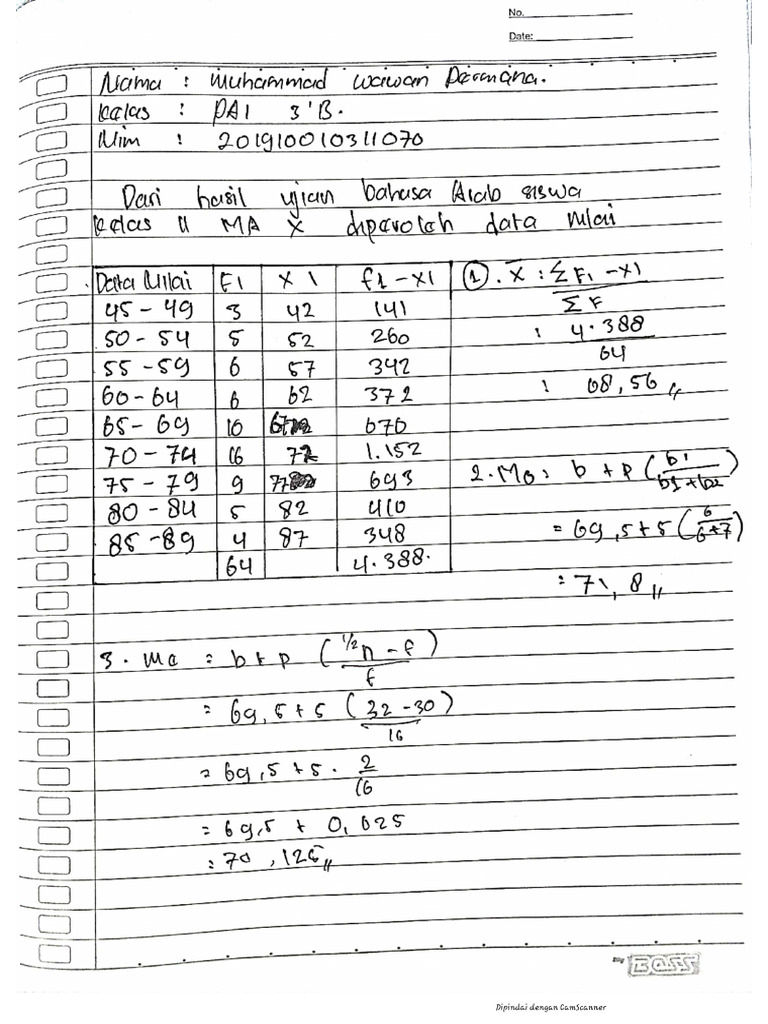 No.
Date:
Nama : Muhammad Wawan Permana.
Kelas : PAI 3'B.
Nim : 201910010311070
Dari hasil ujian bahasa Arab siswa
kelas II MA X diperoleh data nilai
Data Nilai F1 X1 f1-x1
45-49 3 42 141
50-54 5 52 260
55-59 6 57 342
60-64 6 62 372
65-69 10 67 670
70-74 16 72 1.152
75-79 9 77 693
80-84 5 82 410
85-89 4 87 348
64 4.388.
① . X̄ : ΣF1-X1
ΣF
: 4.388
64
: 68,56 〃
2. Mo : b + p (b1
b1+b2)
= 69,5+5 (6
6+7)
: 71,8 〃
3. Me = b+p (1/2 n - f)
f
= 69,5+5 (32-30)
16
= 69,5+5 . 2
16
= 69,5 + 0,625
: 70,125 〃
BOSS
Dipindai dengan CamScanner